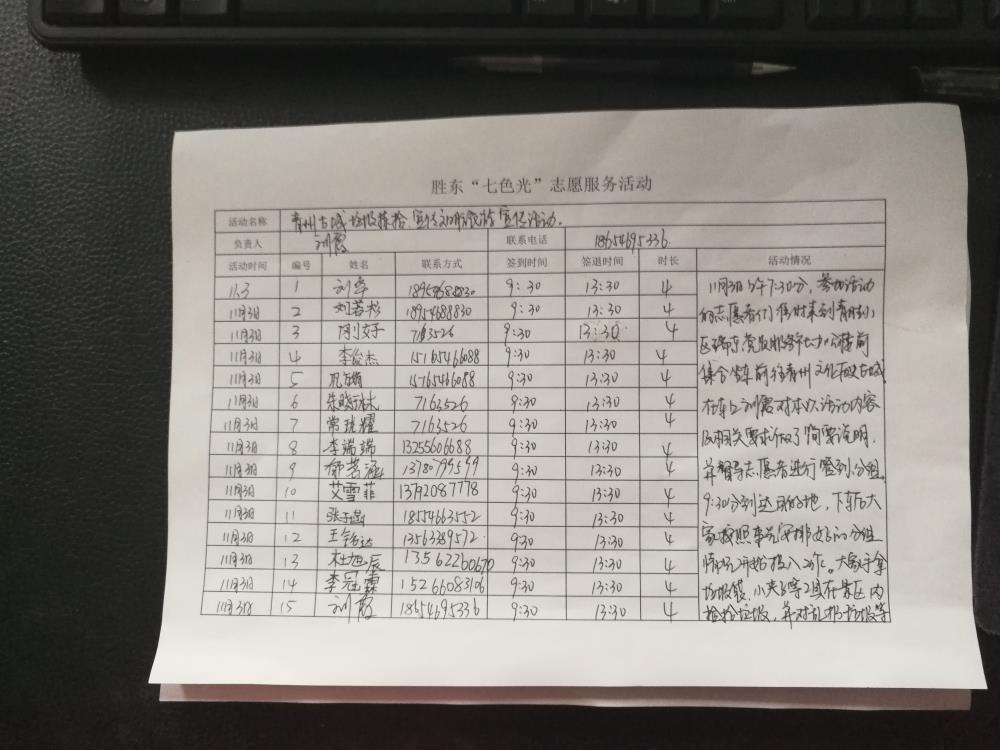 胜东“七色光”志愿服务活动
活动名称 青州古城垃圾捡拾、宣传文明旅游宣传活动.
负责人 刘霞 联系电话 18654695336.
活动时间 编号 姓名 联系方式 签到时间 签退时间 时长 活动情况
11.3 1 9:30 13:30 4
11月3日 2 刘若杉 18954688830 9:30 13:30 4
11月3日 3 7163526 9:30 13:30 4
11月3日 4 李俊杰 15765466088 9:30 13:30 4
11月3日 5 15765466088 9:30 13:30 4
11月3日 6 7163526 9:30 13:30 4
11月3日 7 常珖耀 7163526 9:30 13:30 4
11月3日 8 李端端 13255606688 9:30 13:30 4
11月3日 9 9:30 13:30 4
11月3日 10 艾雪菲 13792087778 9:30 13:30 4
11月3日 11 18554663552 9:30 13:30 4
11月3日 12 王铭达 13563389572 9:30 13:30 4
11月3日 13 杜旭辰 13562260670 9:30 13:30 4
11月3日 14 李冠霖 15266083106 9:30 13:30 4
11月3日 15 刘霞 18654695336 9:30 13:30 4
11月3日上午7:30分，参加活动
的志愿者们准时来到
区 党群服务中心 前
集合坐车前往青州文化 古城
在车上刘霞对本次活动内容
及相关要求做了简要说明，
并指导志愿者进行签到、分组。
9:30分到达目的地，下车后大
家按照事先安排好的分组
情况开始投入工作。大家手拿
垃圾袋、小夹子等工具在景区内
捡拾垃圾，并对乱扔垃圾等